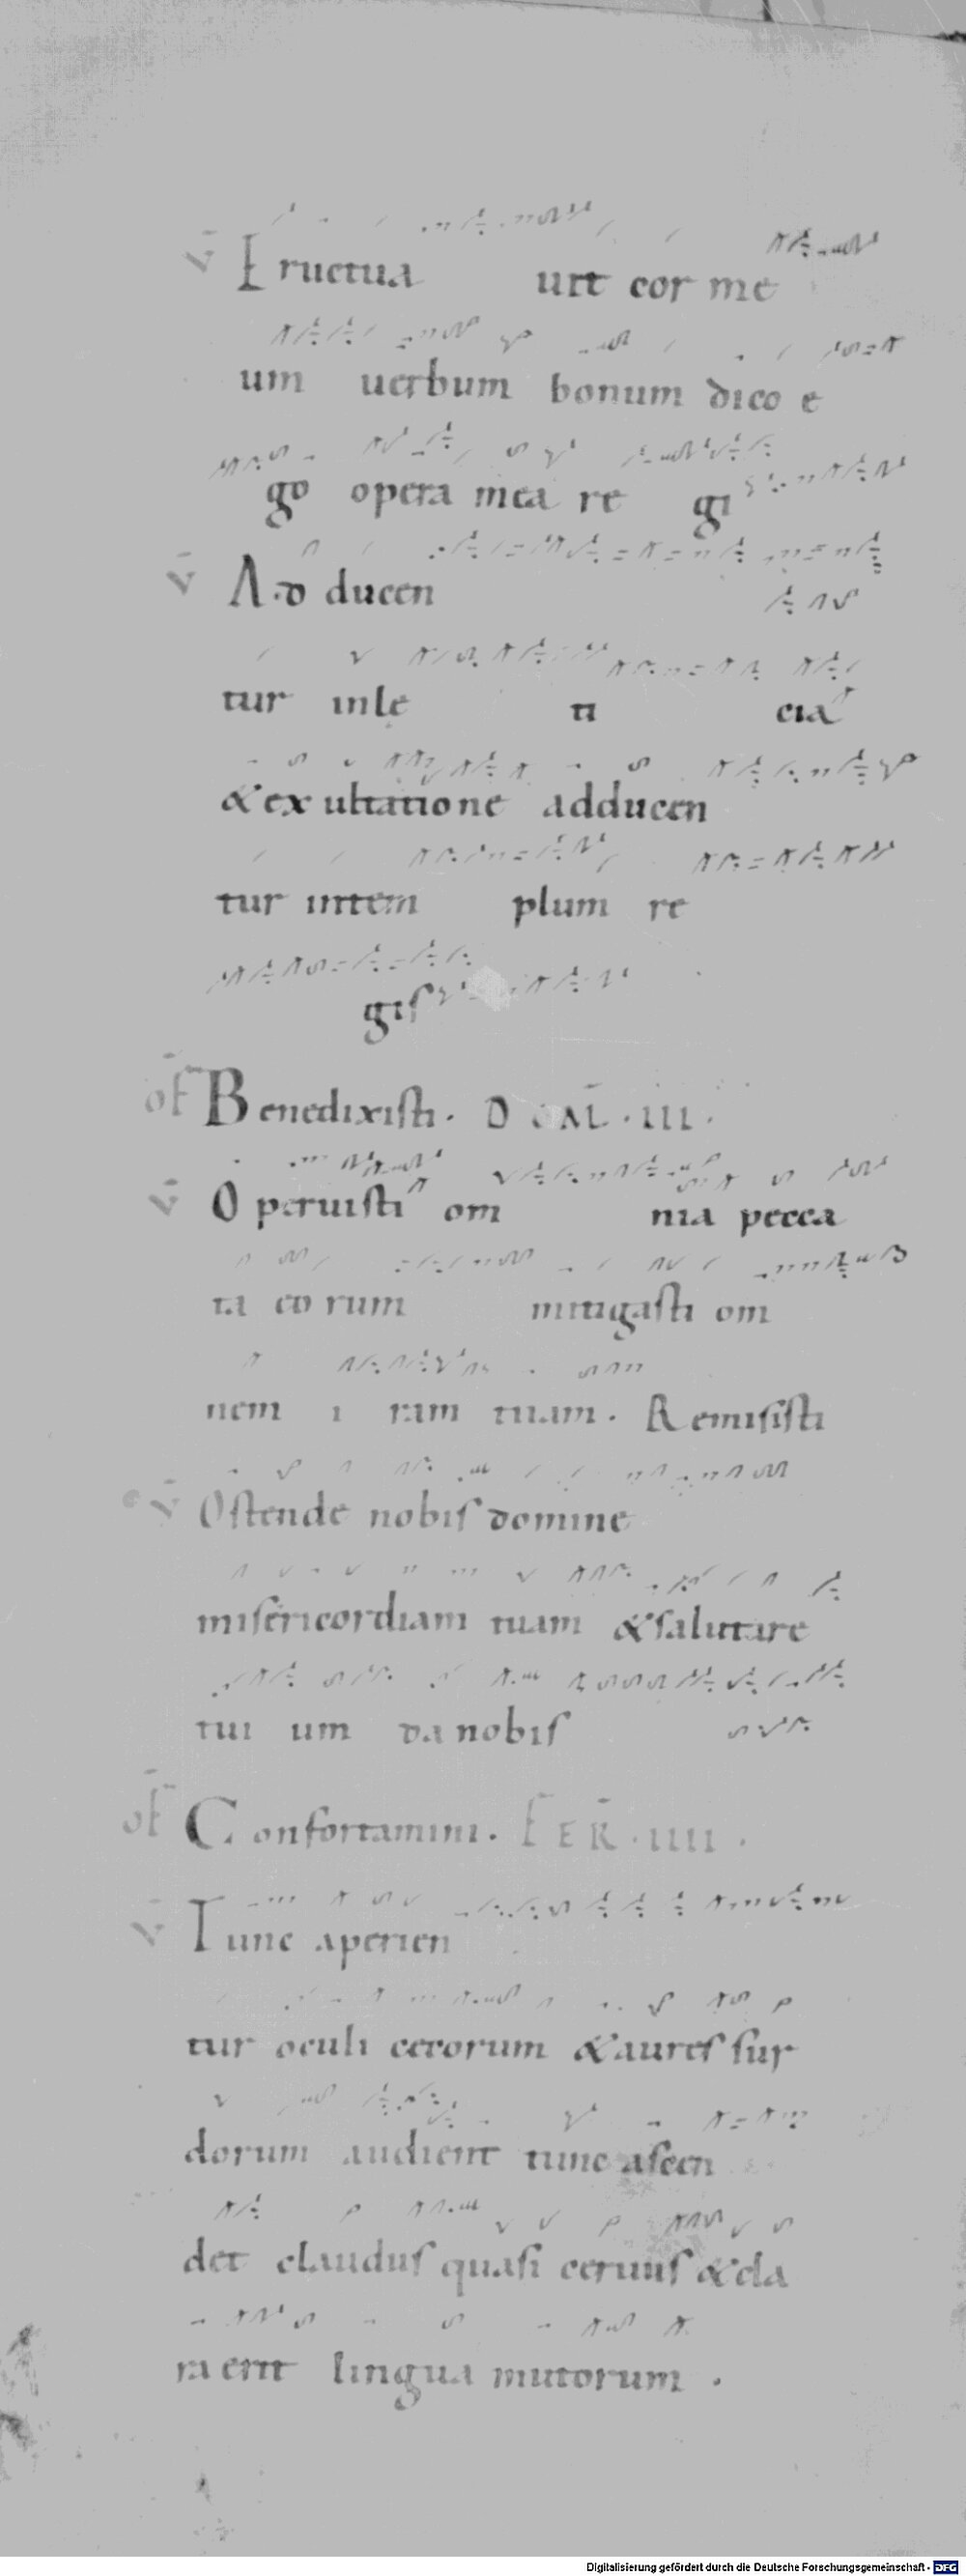 v̄ Eructua uit cor me
um uerbum bonum dico e
go opera mea re gi
v̄ Ad ducen
tur inle ti cia
& ex ultatione adducen
tur intem plum re
gis
of̄ Benedixisti. D CAL̄ · III ·
v̄ Operuisti om nia pecca
ta eo rum mitigasti om
nem i ram tuam. Remisisti
v̄ Ostende nobis domine
misericordiam tuam & salutare
tuum da nobis
of̄ Confortamini. FER̄ · IIII ·
v̄ Tunc aperien
tur oculi cecorum & aures sur
dorum audient tunc ascen
det claudus quasi ceruus & cla
ra erit lingua mutorum.
Digitalisierung gefördert durch die Deutsche Forschungsgemeinschaft - DFG